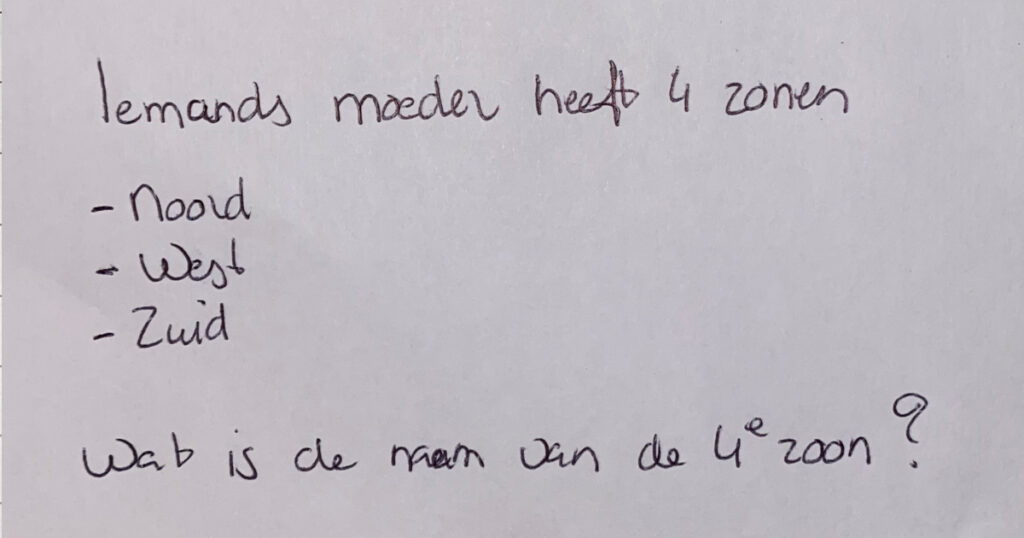 Iemands moeder heeft 4 zonen
- Noord
- West
- Zuid
Wat is de naam van de 4e zoon?